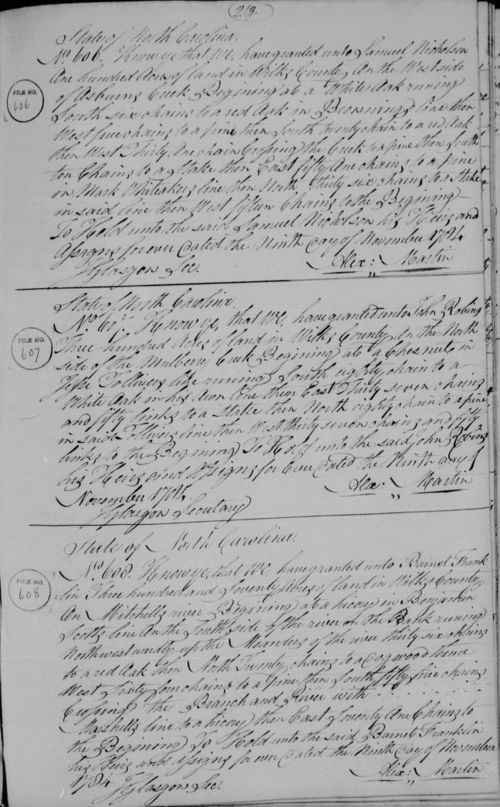 213.
State of North Carolina.
No. 606. Know ye that We have granted unto Samuel Nicholson
One hundred Acres of land in Wilks County On the West side
of Asburns Creek Begining at a White Oak runing
South six chains to a red Oak in Brownings line then
West five chains to a pine then South twenty chain to a red Oak
then West Thirty One chain Crossing the Creek to a pine then South
ten Chains to a Stake then East fifty One chains to a pine
in Mark Whitakers line then North Thirty six chains to a Stake
in said line then West fifteen Chains to the Begining
To Hold unto the said Samuel Nicholson his Heirs and
Assigns for ever Dated the Ninth day of November 1784
J Glasgon Sec. Alex: Martin
FILE NO. 606
State of North Carolina.
No. 607. Know ye, that We have granted unto John Robins
Three hundred Acres of land in Wilks County On the North
side of the Mulberry Creek Begining at a Chesnut in
line runing South eighty chain to a
White Oak in his Own line then East Thirty seven chains
and fifty links to a Stake then North eighty chain to a pine
in said line then West thirty seven chains and fifty
links to the Begining To Hold unto the said John Robins
his Heirs and Assigns for Ever Dated the Ninth day of
November 1784. Alex: Martin
J Glasgon Secretary
FILE NO. 607
State of North Carolina.
No. 608. Know ye, that We have granted unto Barnet Frank
lin Three hundred and Seventy Acres of land in Wilks County
On Mitchells river Begining at a hicory in Benjamin
Scotts line On the South side of the river on the Bank runing
Northwestwardly up the Meanders of the river thirty six chains
to a red Oak then North Twenty chains to a Dogwood thence
West Sixty four chains to a pine then South fifty five chains
Crossing the Branch and River with
Marshills line to a hicory then East Seventy One Chains to
the Begining To Hold unto the said Barnet Franklin
his Heirs and Assigns for ever Dated the Ninth Day of November
1784. J Glasgon Sec. Alex: Martin
FILE NO. 608